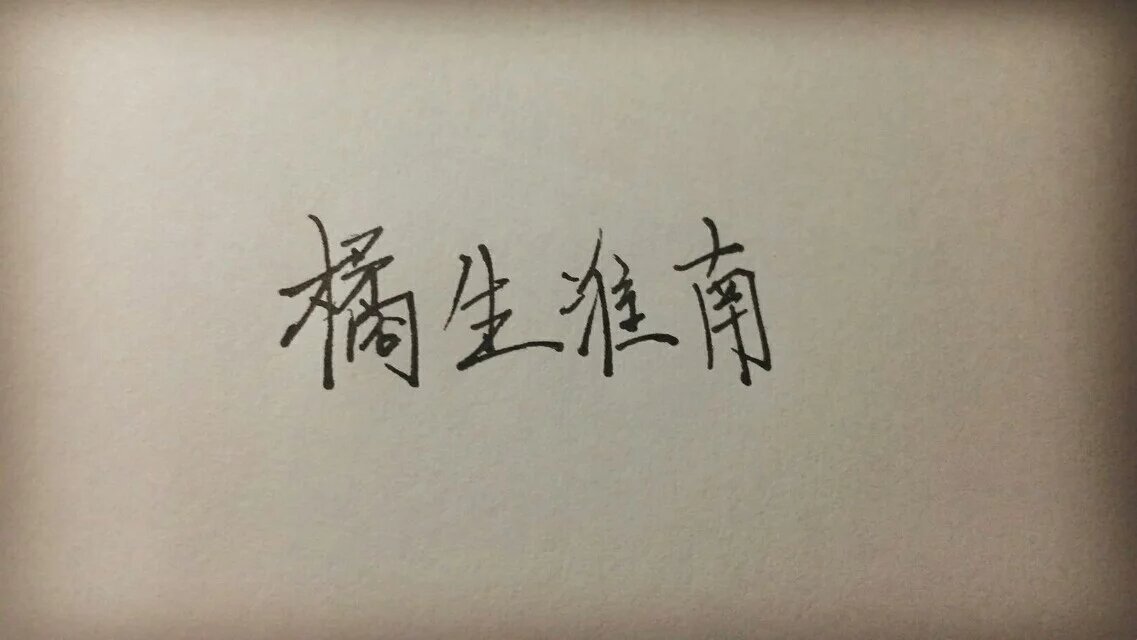 橘生淮南